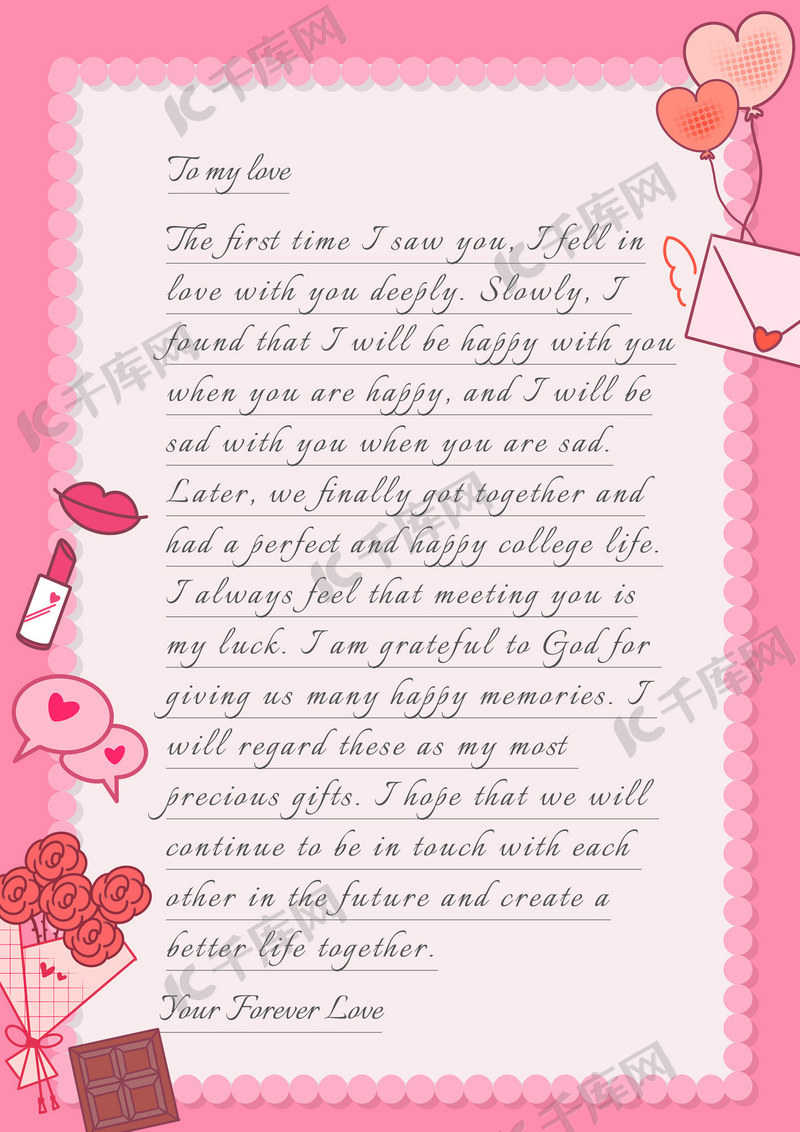 To my love
The first time I saw you, I fell in
love with you deeply. Slowly, I
found that I will be happy with you
when you are happy, and I will be
sad with you when you are sad.
Later, we finally got together and
had a perfect and happy college life.
I always feel that meeting you is
my luck. I am grateful to God for
giving us many happy memories. I
will regard these as my most
precious gifts. I hope that we will
continue to be in touch with each
other in the future and create a
better life together.
Your Forever Love
千库网
千库网
千库网
千库网
千库网
千库网
千库网